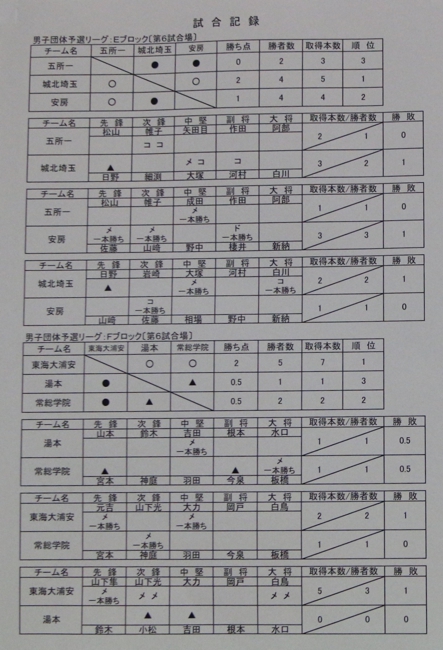 試合記録
男子団体予選リーグ：Eブロック〔第6試合場〕
チーム名 五所一 城北埼玉 安房 勝ち点 勝者数 取得本数 順位
五所一 ● ● 0 2 3 3
城北埼玉 ○ ○ 2 4 5 1
安房 ○ ● 1 4 4 2
チーム名 先鋒 次鋒 中堅 副将 大将 取得本数/勝者数 勝敗
五所一 松山 帷子 矢田目 作田 阿部 2 1 0
コ コ
メ コ コ
城北埼玉 ▲ 3 2 1
日野 細渕 大塚 河村 白川
チーム名 先鋒 次鋒 中堅 副将 大将 取得本数/勝者数 勝敗
五所一 松山 帷子 成田 作田 阿部 1 1 0
メ
一本勝ち
安房 メ メ ド 3 3 1
一本勝ち 一本勝ち 一本勝ち
佐藤 山崎 野中 棲井 新納
チーム名 先鋒 次鋒 中堅 副将 大将 取得本数/勝者数 勝敗
城北埼玉 日野 岩崎 大塚 河村 白川 2 2 1
▲ メ コ
一本勝ち 一本勝ち
安房 コ 1 1 0
一本勝ち
山崎 佐藤 相場 野中 新納
男子団体予選リーグ：Fブロック〔第6試合場〕
チーム名 東海大浦安 湯本 常総学院 勝ち点 勝者数 取得本数 順位
東海大浦安 ○ ○ 2 5 7 1
湯本 ● ▲ 0.5 1 1 3
常総学院 ● ▲ 0.5 2 2 2
チーム名 先鋒 次鋒 中堅 副将 大将 取得本数/勝者数 勝敗
湯本 山本 鈴木 吉田 根本 水口 1 1 0.5
メ
一本勝ち
常総学院 ▲ ▲ メ 1 1 0.5
一本勝ち
宮本 神庭 羽田 今泉 板橋
チーム名 先鋒 次鋒 中堅 副将 大将 取得本数/勝者数 勝敗
東海大浦安 元吉 山下光 大力 岡戸 白鳥 2 2 1
メ メ
一本勝ち 一本勝ち
常総学院 メ 1 1 0
一本勝ち
宮本 神庭 羽田 今泉 板橋
チーム名 先鋒 次鋒 中堅 副将 大将 取得本数/勝者数 勝敗
東海大浦安 山下隼 山下光 大力 岡戸 白鳥 5 3 1
メ メ メ メ メ
一本勝ち
湯本 ▲ ▲ 0 0 0
鈴木 小松 吉田 根本 水口